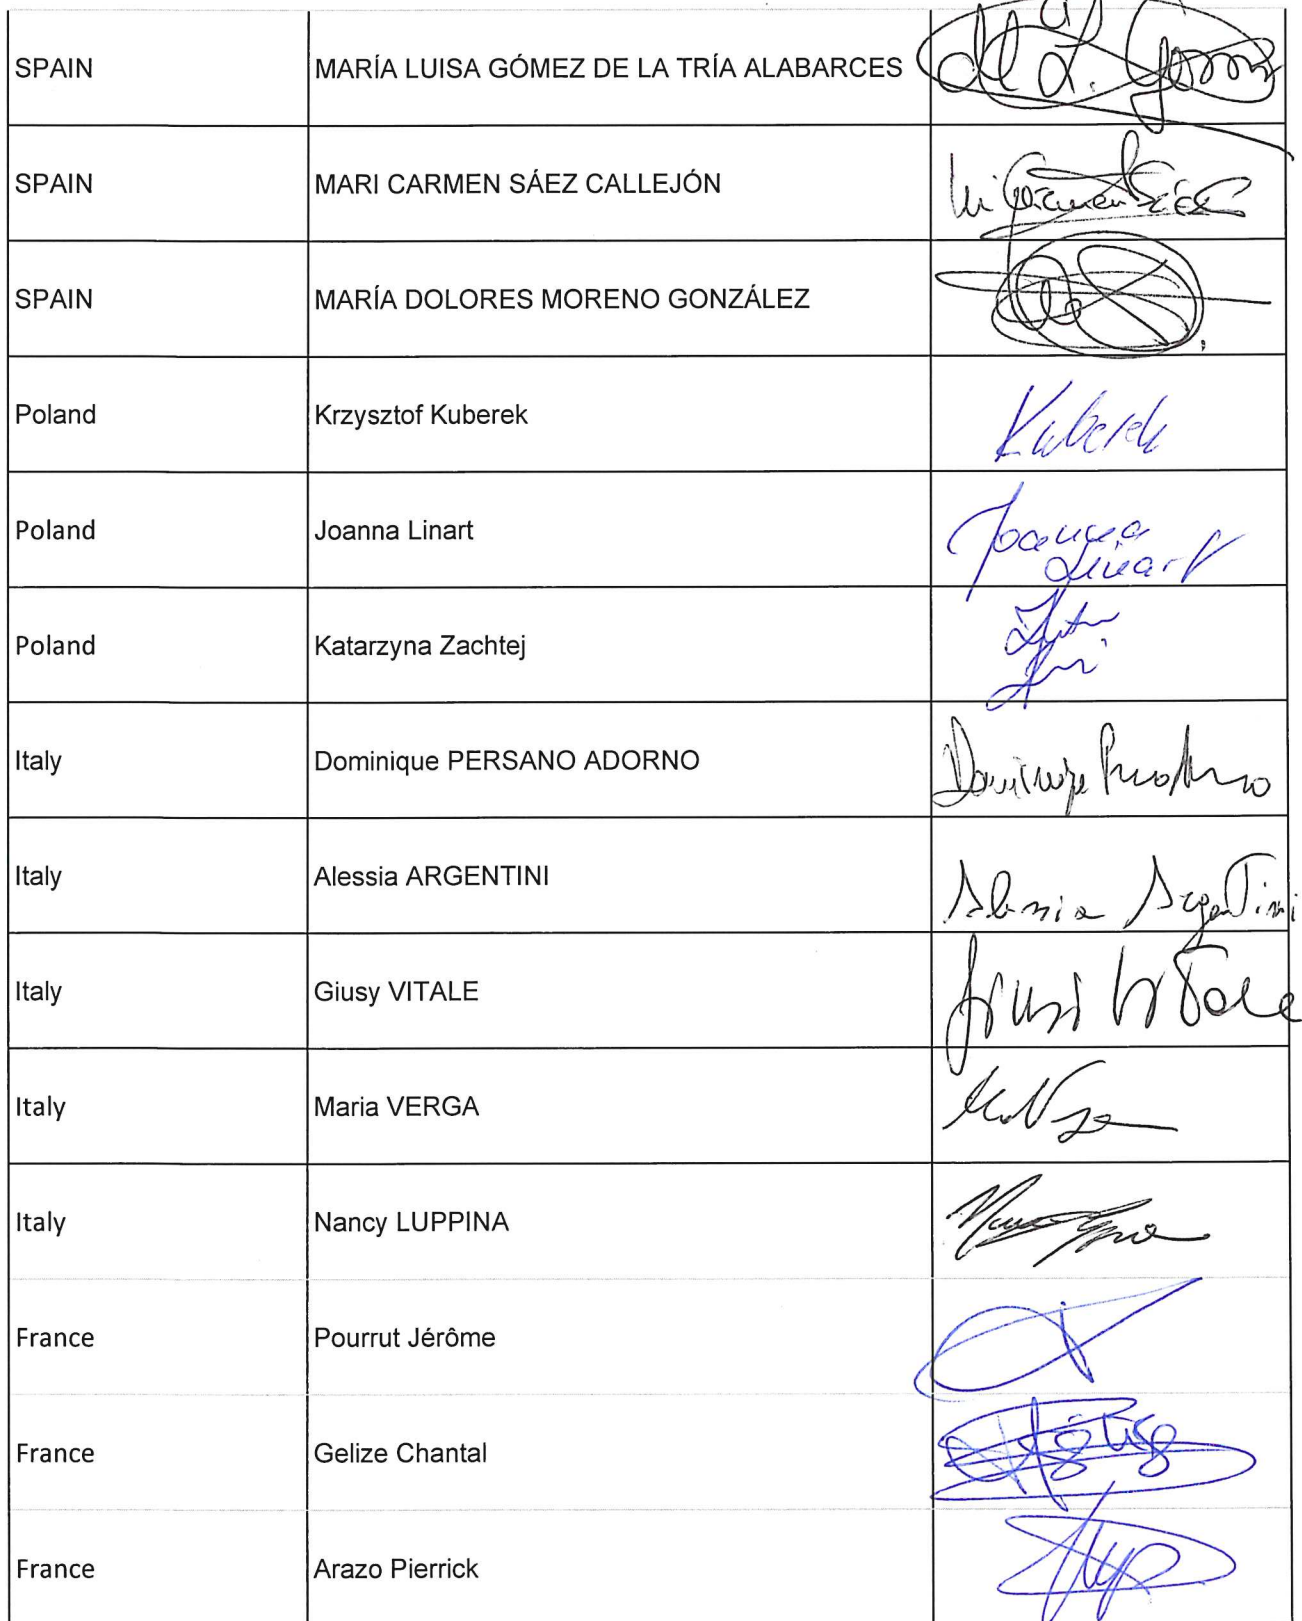 SPAIN MARÍA LUISA GÓMEZ DE LA TRÍA ALABARCES
SPAIN MARI CARMEN SÁEZ CALLEJÓN
SPAIN MARÍA DOLORES MORENO GONZÁLEZ
Poland Krzysztof Kuberek Kuberek
Poland Joanna Linart Joanna
Linart
Poland Katarzyna Zachtej
Italy Dominique PERSANO ADORNO
Italy Alessia ARGENTINI Alessia Argentini
Italy Giusy VITALE Giusi Vitale
Italy Maria VERGA
Italy Nancy LUPPINA
France Pourrut Jérôme
France Gelize Chantal
France Arazo Pierrick